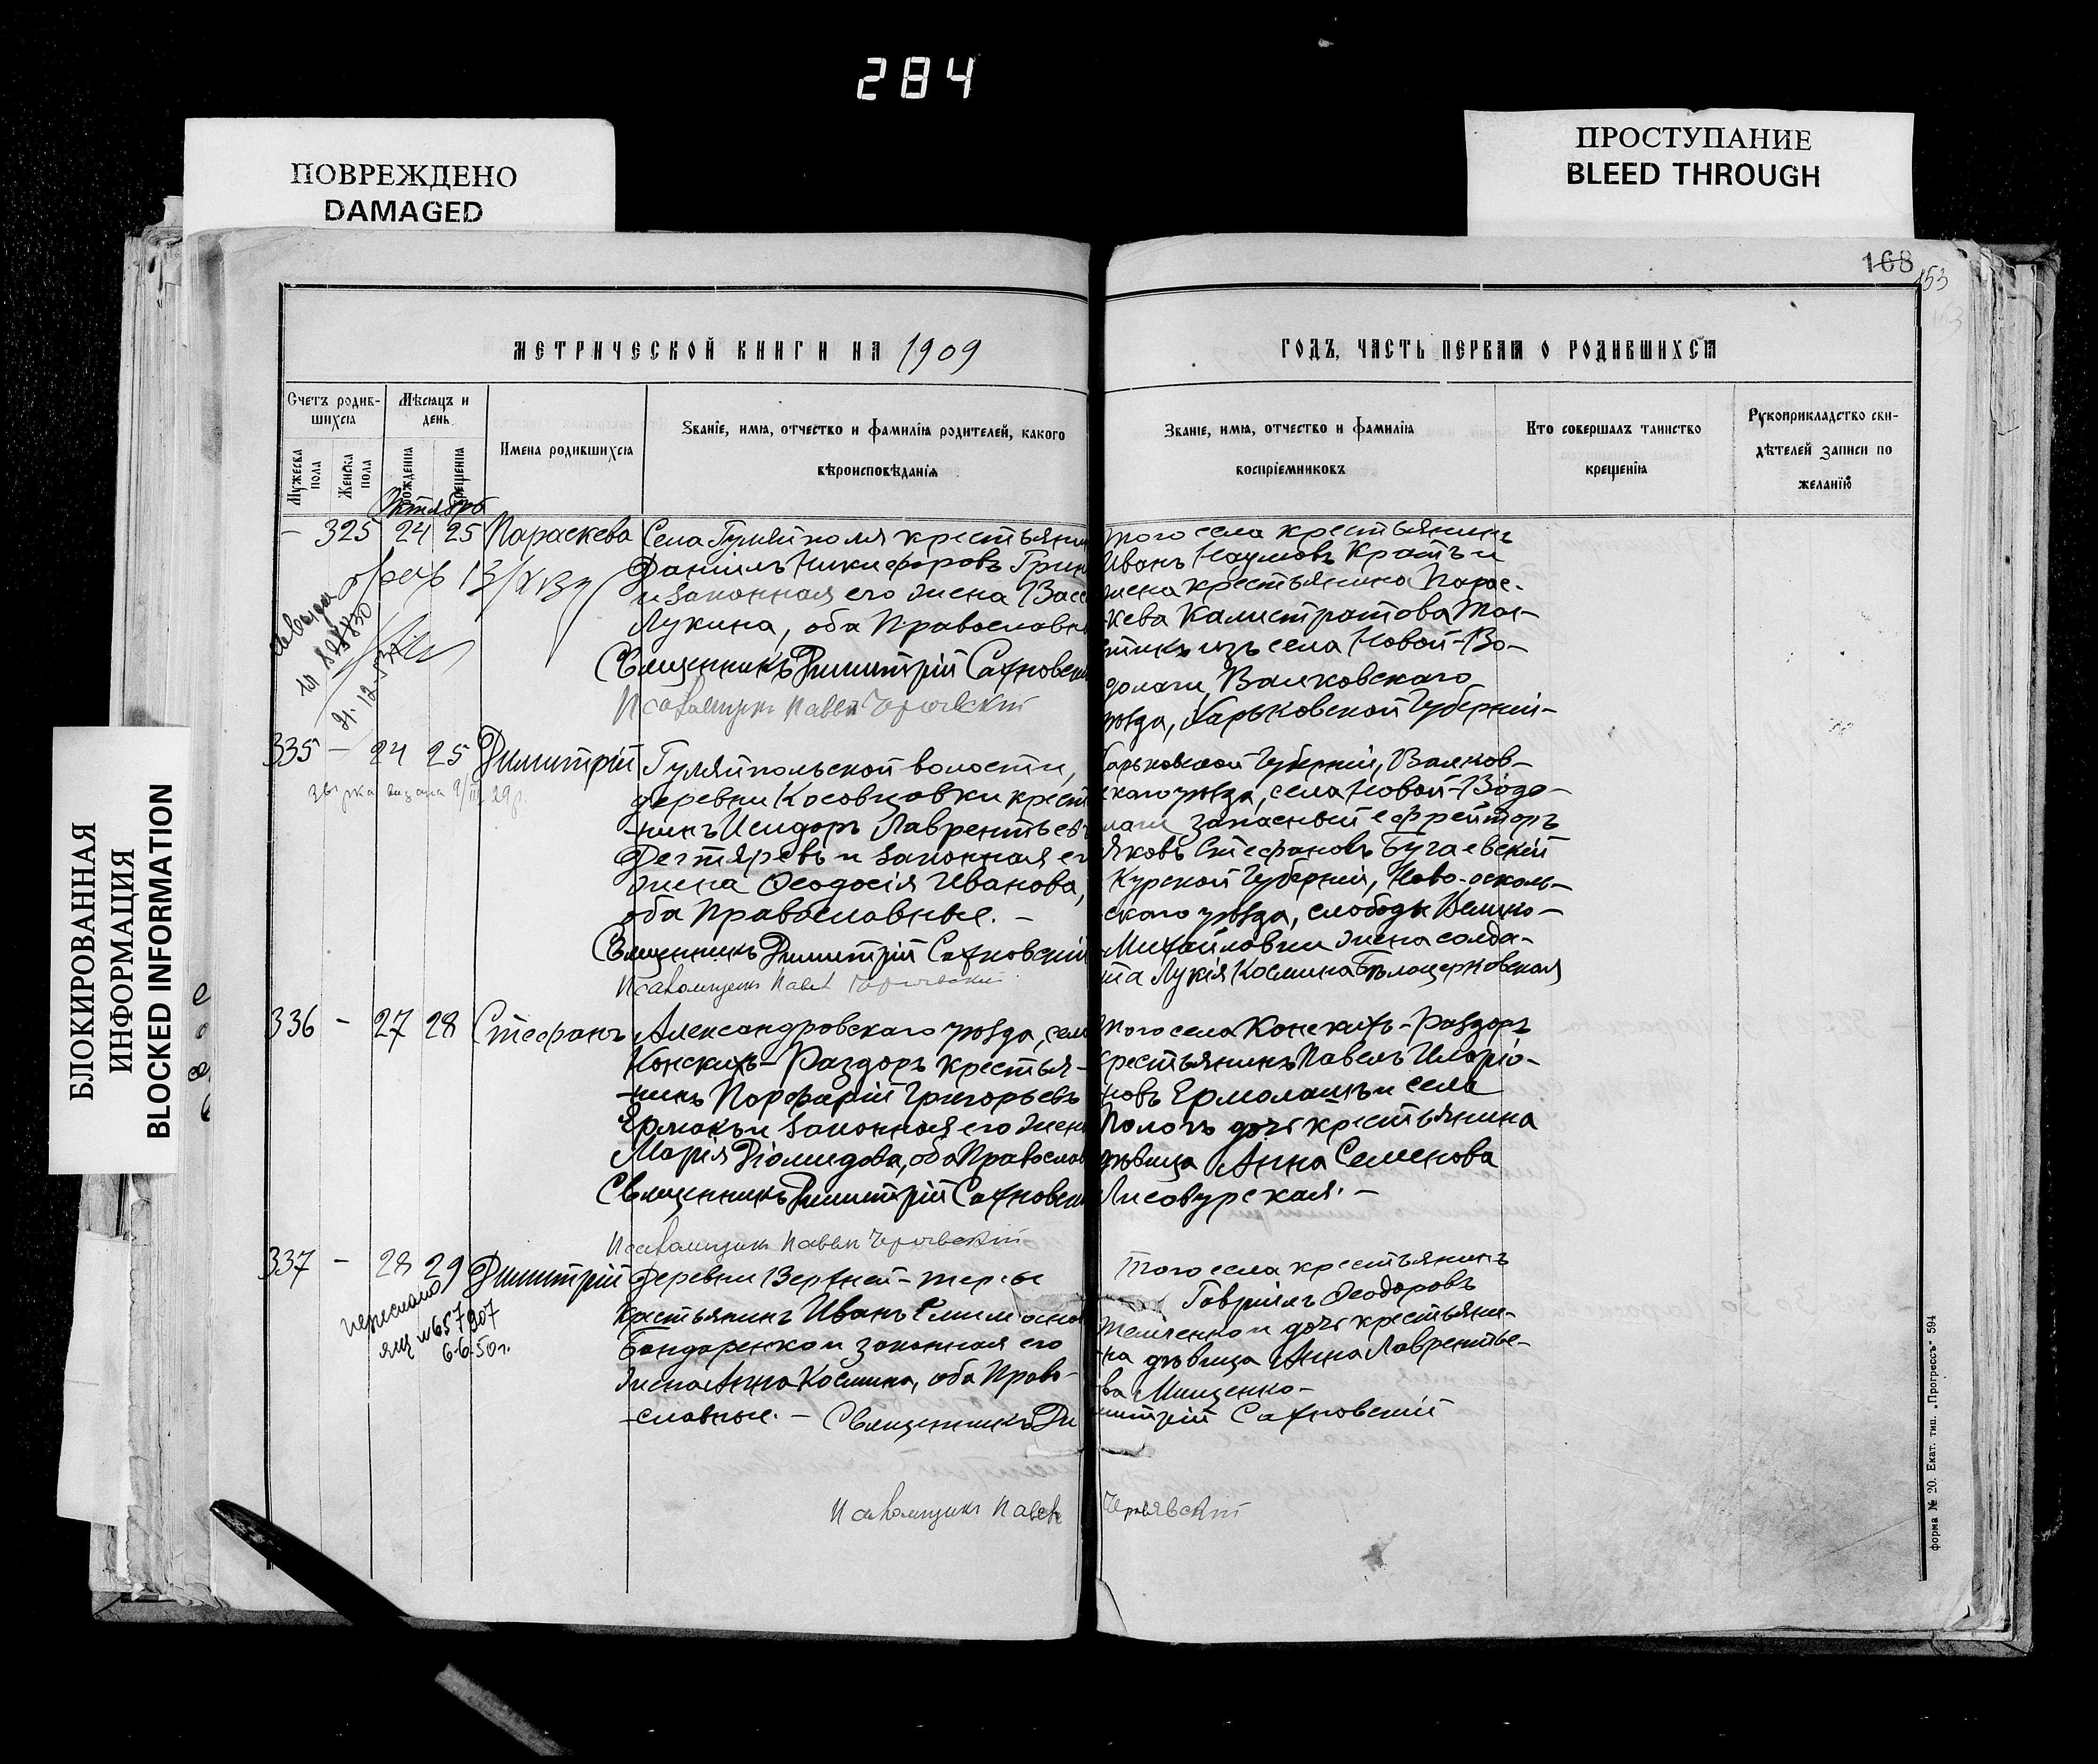 284
ПОВРЕЖДЕНО
DAMAGED
ПРОСТУПАНИЕ
BLEED THROUGH
БЛОКИРОВАННАЯ
ИНФОРМАЦИЯ
BLOCKED INFORMATION
168
153
МЕТРИЧЕСКОЙ КНИГИ НА 1909
ГОДЪ, ЧАСТЬ ПЕРВАЯ О РОДИВШИХСЯ
Счетъ родив-
шихся
Мужеска
пола
Женска
пола
Мѣсяцъ и
день
рожденія
крещенія
Имена родившихся
Званіе, имя, отчество и фамилія родителей, какого
вѣроисповѣданія
Званіе, имя, отчество и фамилія
воспріемниковъ
Кто совершалъ таинство
крещенія
Рукоприкладство сви-
дѣтелей записи по
желанію
Октябрь
– 325 24 25 Параскева
Села Гуляйполя крестьянин
Даніилъ Никифоровъ Грин
и законная его жена Васс
Лукина, оба Православн
Священникъ Димитрій Сахновски
Псаломщикъ Павел
того села крестьянинъ
Иванъ Наумовъ Кратъ и
жена крестьянина Парас-
кева Калистратова
изъ села Новой-Во-
долаги, Валковскаго
уѣзда, Харьковской Губерніи-
335 – 24 25 Димитрій
29 р.
Гуляйпольской волости,
деревни Косовцовки крест
-нинъ Исидоръ Лаврентьевъ
Дегтяревъ и законная ег
жена Ѳеодосія Иванова,
оба Православные. –
Священникъ Димитрій Сахновскій
Псаломщикъ Павел
Харьковской Губерніи, Валков-
скаго уѣзда, села Новой-Водо-
лаги запасный ефрейторъ
Яковъ Стефановъ Бугаевскій
Курской Губерніи, Ново-осколь-
скаго уѣзда, слободы Велико-
Михайловки жена солда-
та Лукія Космина Бѣлоцерковская
336 – 27 28 Стефанъ
Александровскаго уѣзда, сел
Конскихъ-Раздоръ крестья-
-нинъ Порфирій Григорьевъ
Ермакъ и законная его жен
Марія Діомидова, оба Православ
Священникъ Димитрій Сахновски
Псаломщикъ Павел
того села Конскихъ-Раздоръ
крестьянинъ Павелъ Иларіо-
новъ Ермолашъ и села
Пологъ дочь крестьянина
дѣвица Анна Семенова
Лисовурская. –
337 – 28 29 Димитрій
переслано
6-6-50г.
Деревни Верхней-терсы
Крестьянинъ Иванъ
Бондаренко и законная его
жена Анна Космина, оба Право-
-славные. – Священникъ Ди
Псаломщикъ Павел
Того села крестьянинъ
Гавріилъ Ѳеодоровъ
и дочь крестьяни-
на дѣвица Анна Лаврентье-
ва Мищенко-
митрій Сахновскій
Чернявскій
форма № 20. Екат. тип. „Прогрессъ“ 594